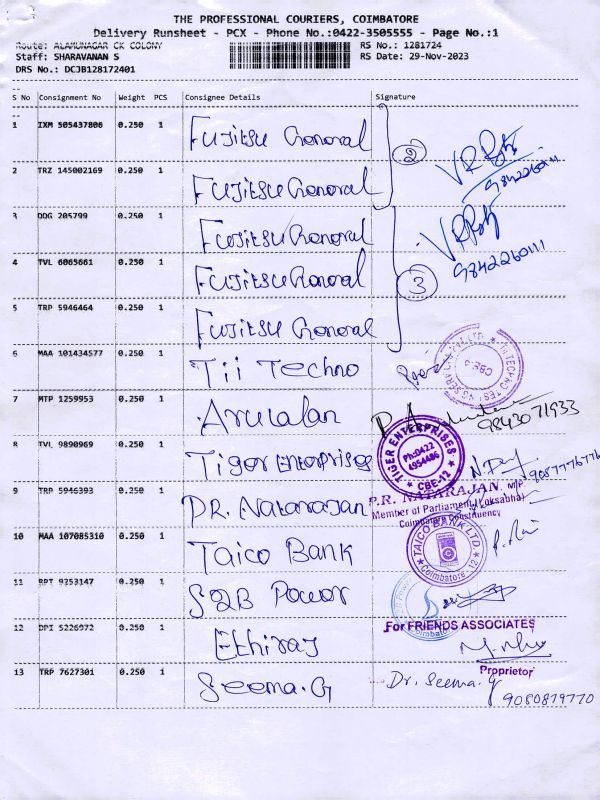 THE PROFESSIONAL COURIERS, COIMBATORE
Delivery Runsheet - PCX - Phone No.:0422-3505555 - Page No.:1
Route: ALAMUNAGAR CK COLONY
RS No.: 1281724
Staff: SHARAVANAN S
RS Date: 29-Nov-2023
DRS No.: DCJB128172401
S No Consignment No Weight PCS Consignee Details Signature
1 IXM 505437806 0.250 1 Fujitsu General
2
2 TRZ 145002169 0.250 1 Fujitsu General
9842260111
3 DDG 205799 0.250 1 Fujitsu General
9842260111
4 TVL 6065661 0.250 1 Fujitsu General
3
5 TRP 5946464 0.250 1 Fujitsu General
6 MAA 101434577 0.250 1 Tii Techno
7 MTP 1259953 0.250 1 Arulalan
9843071933
8 TVL 9890969 0.250 1 Tiger Enterprises
TIGER ENTERPRISES
Ph:0422
4954486
CBE-12
9 TRP 5946393 0.250 1 DR. Natarajan
P.R. NATARAJAN, MP
Member of Parliament (Loksabha)
Coimbatore Constituency
10 MAA 107085310 0.250 1 Taico Bank
TAICO BANK LTD.
Coimbatore-12
11 RPT 9253147 0.250 1 S2B Power
Coimbatore
12 DPI 5226972 0.250 1 Ethiraj
For FRIENDS ASSOCIATES
Proprietor
13 TRP 7627301 0.250 1 Seema.G
Dr. Seema.G
9080819770